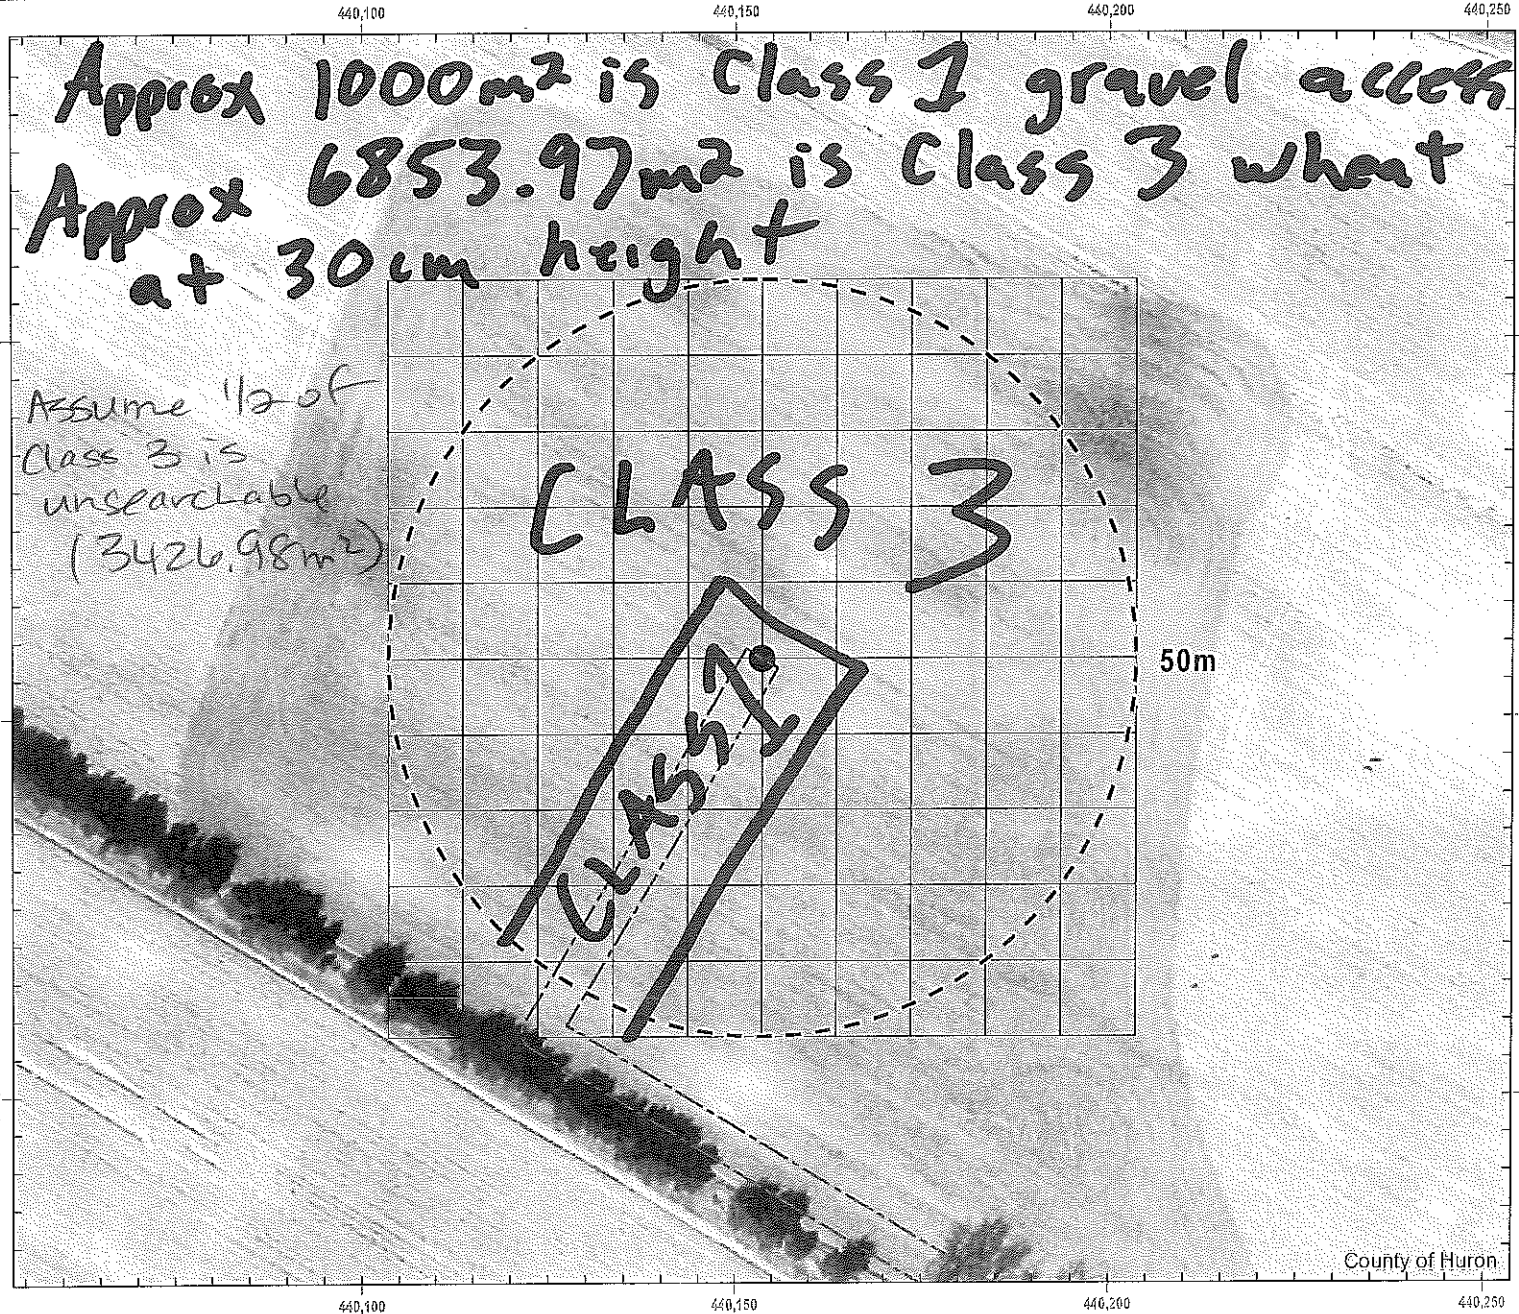 440,100 440,150 440,200 440,250
Approx 1000m² is Class 1 gravel access
Approx 6853.97m² is Class 3 wheat
at 30cm height
Assume 1/2 of
Class 3 is
unsearchable
(3426.98m²)
CLASS 3
50m
CLASS 1
County of Huron
440,100 440,150 440,200 440,250